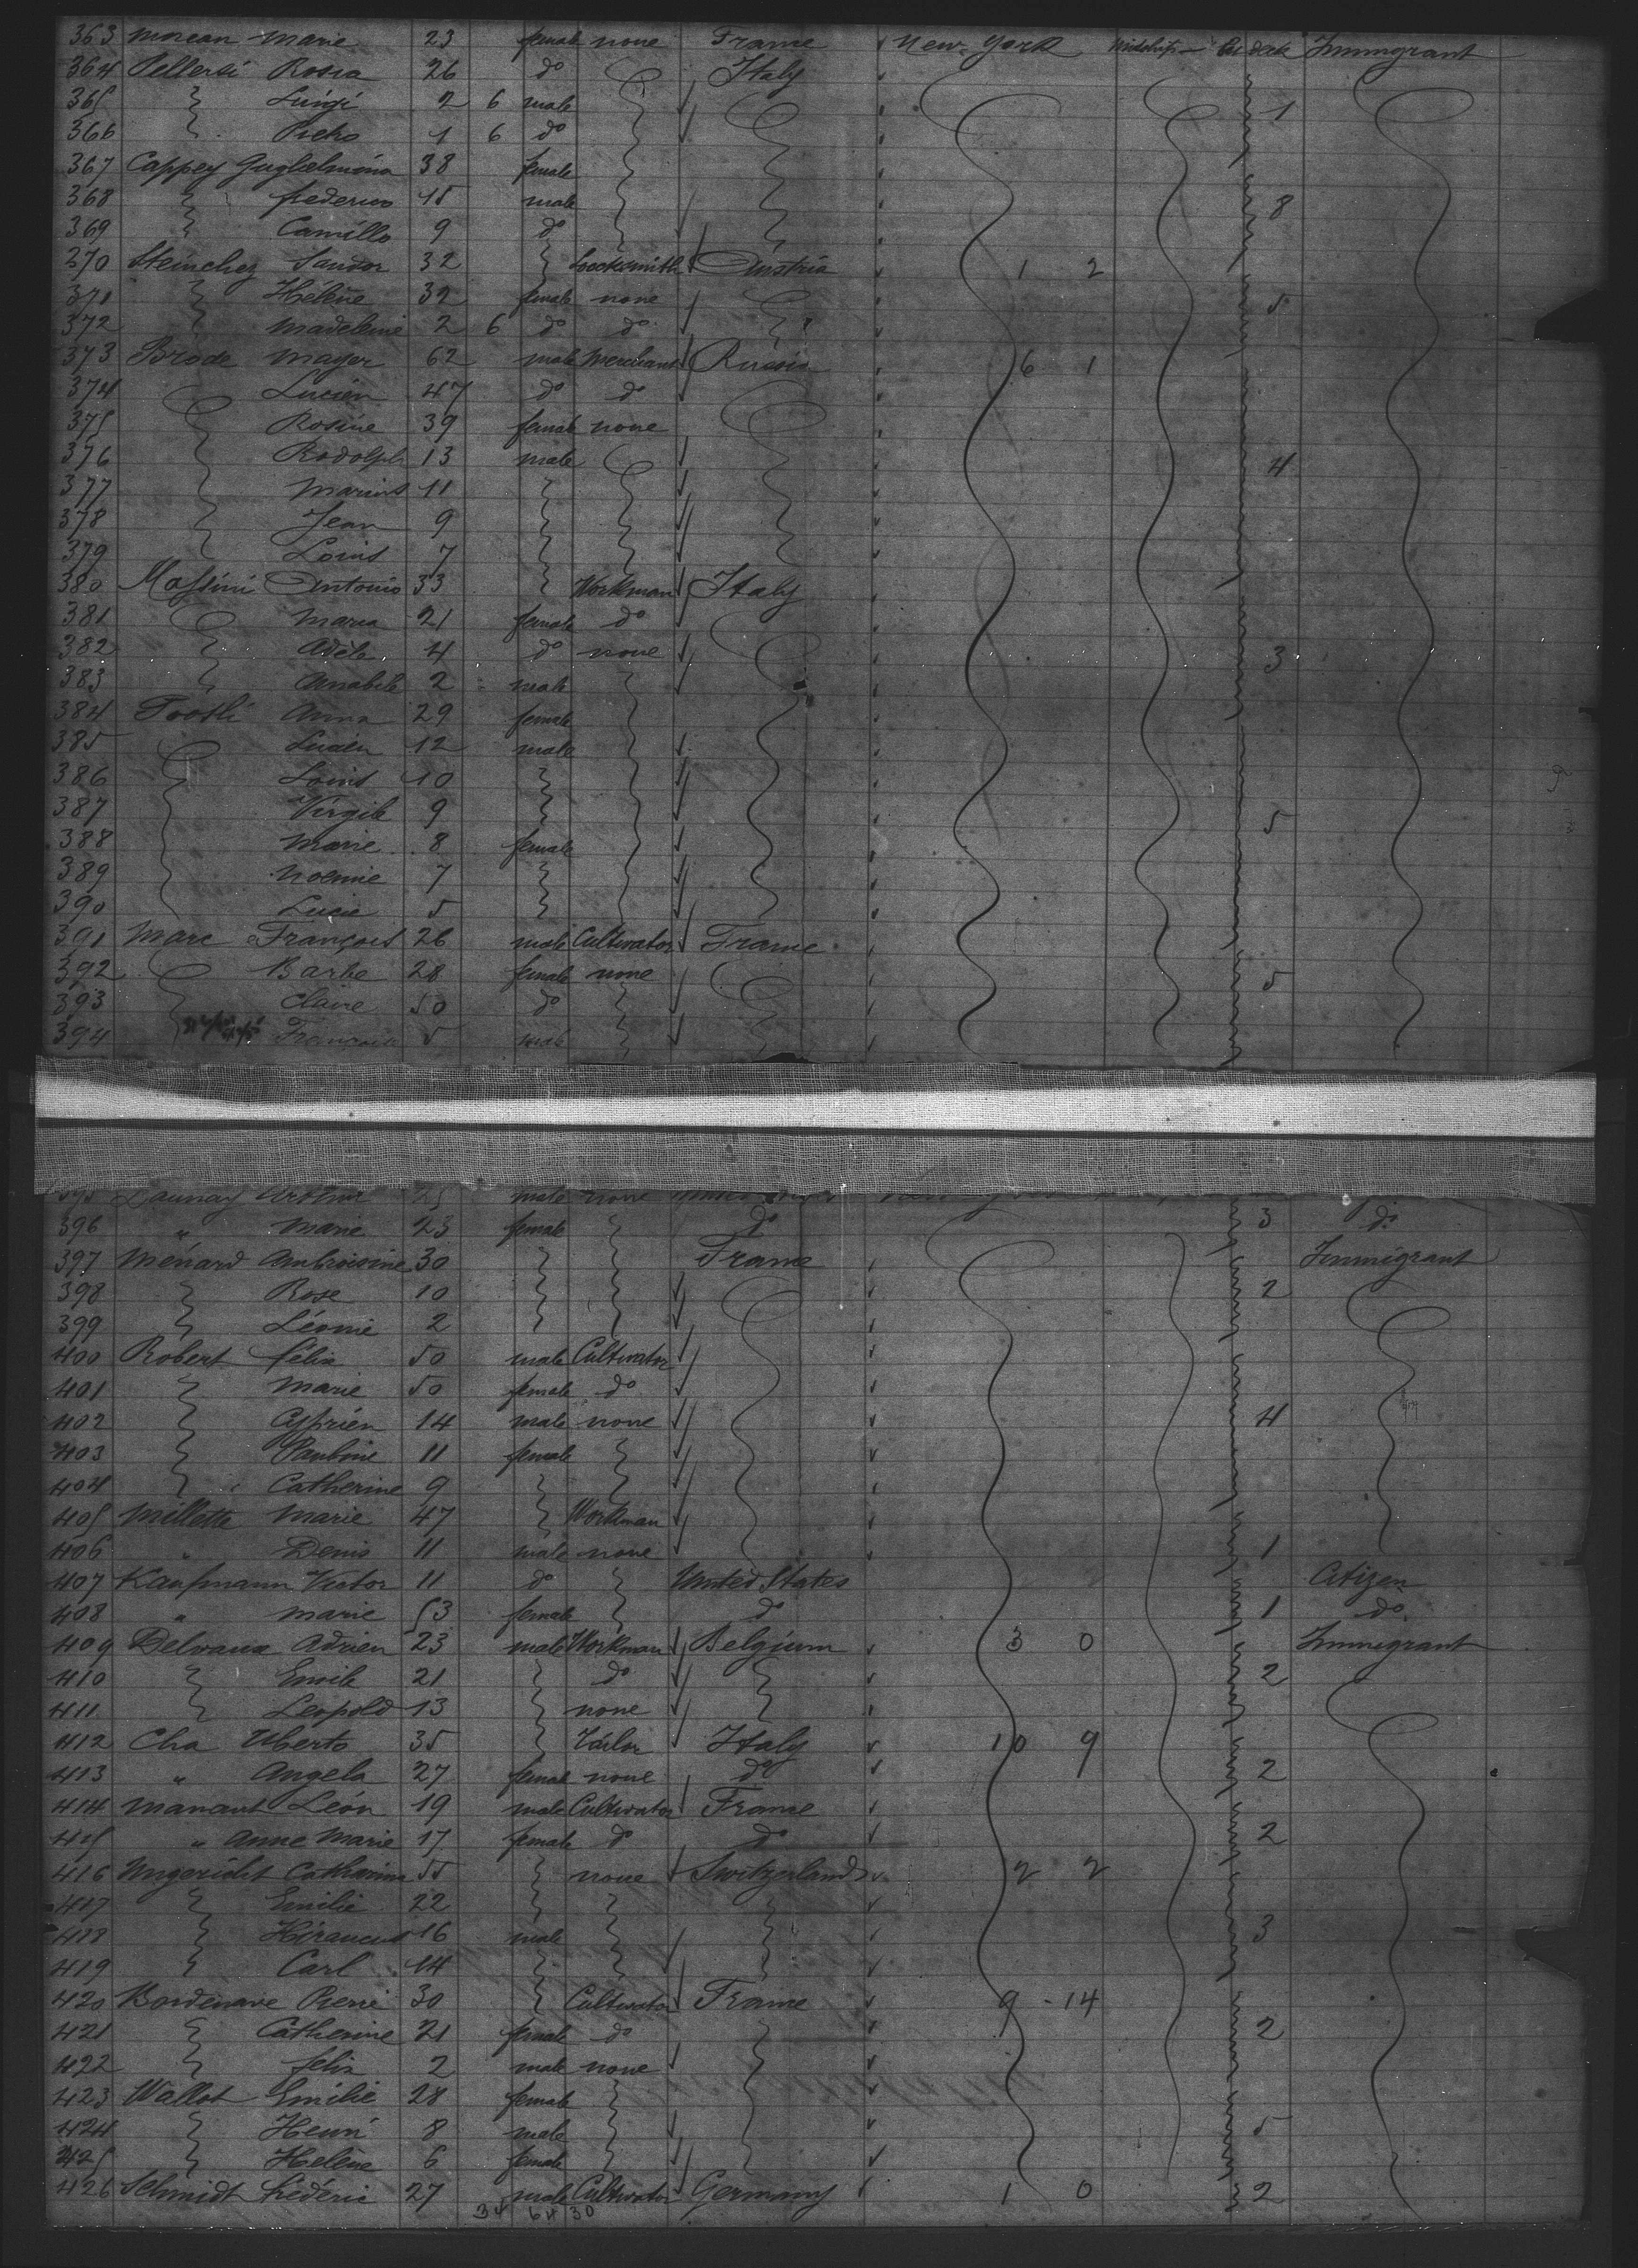 363 Morean Marie 23 female none France New York Midship Bet deck Immigrant
364 Pellersi Rosia 26 do Italy
365 Luigi 2 6 male 1
366 Pietro 1 6 do
367 Cappey Guglielmina 38 female
368 Frederico 15 male 8
369 Camillo 9 do
370 Steinchez Sandor 32 Loocksmith Austria 1 2
371 Hélène 32 female none 5
372 Madeleine 2 6 do do
373 Brode Mayer 62 male Merchant Russia 6 1
374 Lucien 47 do do
375 Rosine 39 female none
376 Rodolph 13 male 4
377 Marius 11
378 Jean 9
379 Louis 7
380 Massini Antonio 33 Workman Italy
381 Maria 21 female do
382 Adèle 4 do none 3
383 Anabile 2 male
384 Toosli Anna 29 female
385 Lucien 12 male
386 Louis 10
387 Virgile 9 5
388 Marie 8 female
389 Noemie 7
390 Lucie 5
391 Marc François 26 male Cultivator France
392 Barbe 28 female none 5
393 Claire 50 do
394 François 5 male
395 Launay Arthur 25 male none
396 " Marie 23 female do 3 do
397 Ménard Ambroisine 30 France Immigrant
398 Rose 10 2
399 Léonie 2
400 Robert Félix 50 male Cultivator
401 Marie 50 female do
402 Cyprien 14 male none 4
403 Pauline 11 female
404 Catherine 9
405 Millette Marie 47 Workman
406 " Denis 11 male none 1
407 Kaufmann Victor 11 do United States Citizen
408 " Marie 53 female do 1 do
409 Delvaux Adrien 23 male Workman Belgium 3 0 Immigrant
410 Emile 21 do 2
411 Leopold 13 none
412 Cha Uberto 35 Tailor Italy 10 9
413 " Angela 27 female none do 2
414 Manaut Léon 19 male Cultivator France
415 " Anne Marie 17 female do do 2
416 Ungericht Catharina 55 none Switzerland 2 2
417 Emilie 22
418 Hirancus 16 male 3
419 Carl 14
420 Bordenave Pierre 30 Cultivator France 9 - 14
421 Catherine 21 female do 2
422 Felix 2 male none
423 Wallot Emilie 28 female
424 Henri 8 male 5
425 Helène 6 female
426 Schmidt Frédéric 27 male Cultivator Germany 1 0 2
34 64 30